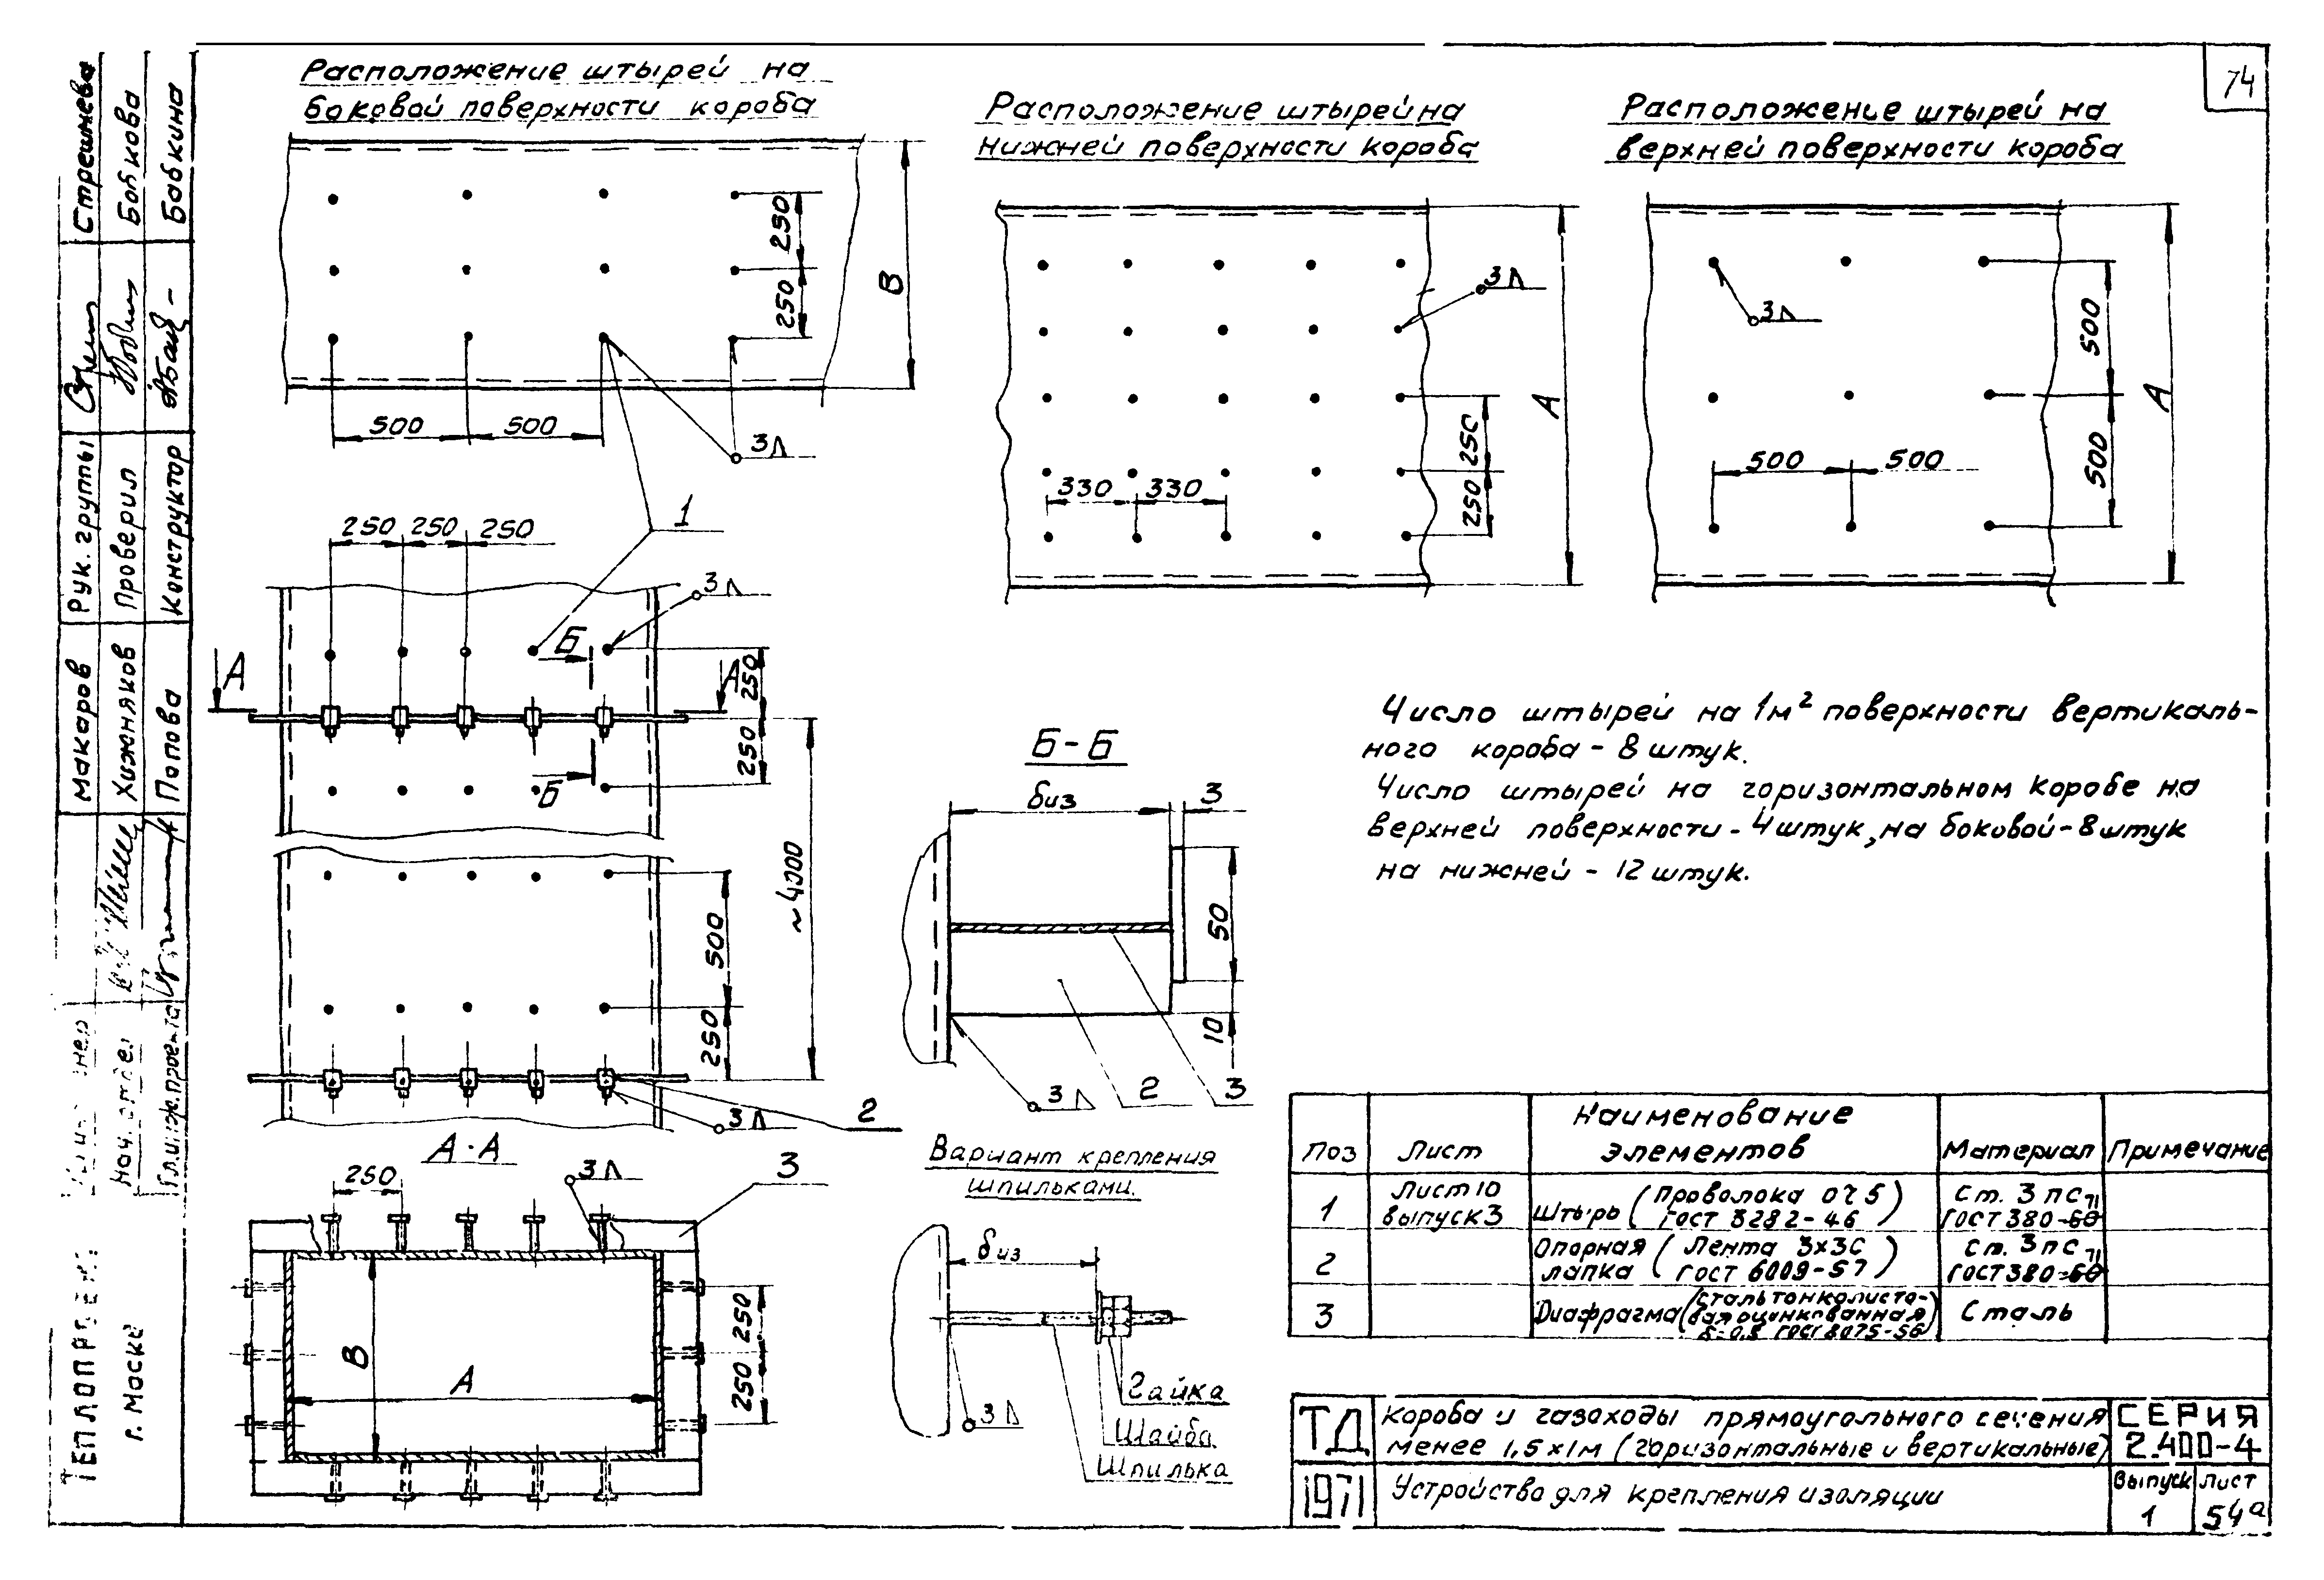 74
Расположение штырей на
боковой поверхности короба
250
250
В
500
500
3
1
Расположение штырей на
нижней поверхности короба
3
330
330
250
250
А
Расположение штырей на
верхней поверхности короба
3
500
500
500
500
А
250
250
250
3
Б
А
А
250
250
Б
~4000
500
250
3
2
А-А
250
3
3
В
А
250
250
Б-Б
биз
3
50
10
3
2
3
Вариант крепления
шпильками.
биз
3
Гайка
Шайба
Шпилька
Число штырей на 1м² поверхности вертикаль-
ного короба - 8 штук.
Число штырей на горизонтальном коробе на
верхней поверхности - 4 штук, на боковой - 8 штук
на нижней - 12 штук.
Поз
Лист
Наименование
элементов
Материал
Примечание
1
Лист 10
выпуск 3
Штырь (проволока ОЧ 5
ГОСТ 3282-46)
Ст. 3 пс
ГОСТ 380-60 71
2
Опорная лапка (Лента 3х30
ГОСТ 6009-57)
Ст. 3 пс
ГОСТ 380-60 71
3
Диафрагма (сталь тонколисто-
вая оцинкованная
ГОСТ 8075-56)
Сталь
ТД
1971
Короба и газоходы прямоугольного сечения
менее 1,5х1м (горизонтальные и вертикальные)
Устройство для крепления изоляции
СЕРИЯ
2.400-4
Выпуск
1
Лист
54а
Стрешнева
Бобкова
Бабкина
Рук. группы
Проверил
Конструктор
Макаров
Хижняков
Попова
Нач. отдел
Гл. инж. проекта
ТЕПЛОПРОЕКТ
г. Москва